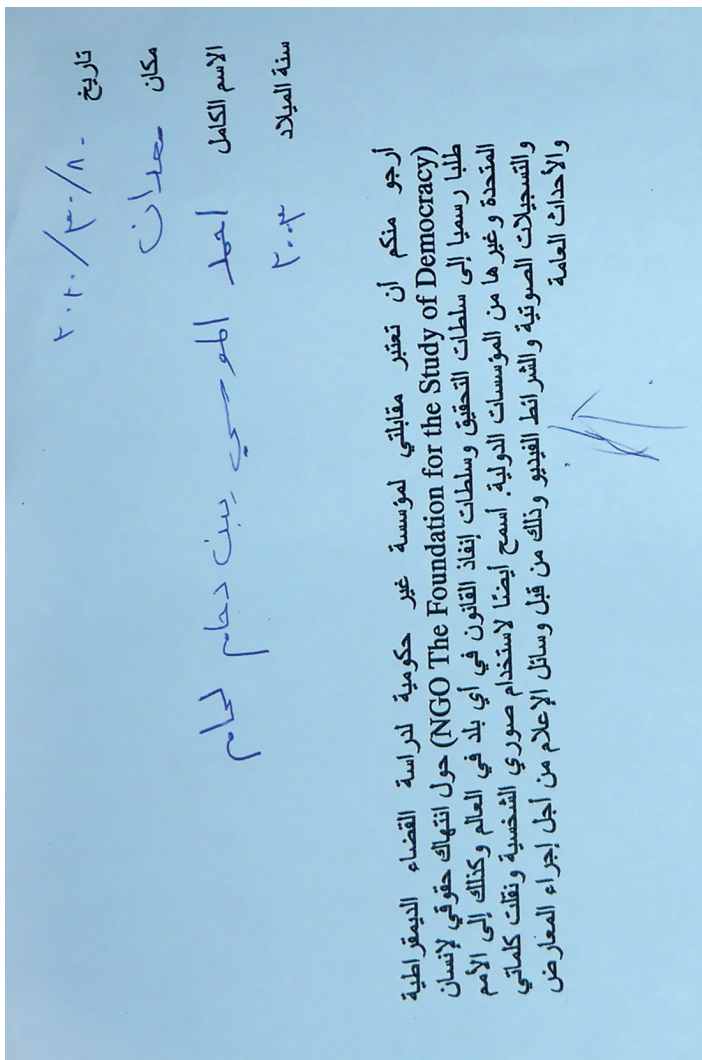 تاريخ ٢٠٢٠/٣٠/٨٠
مكان معدان
الاسم الكامل احمد الموسي بن دحام
سنة الميلاد ٢٠٠٣
أرجو منكم أن تعتبر مقابلتي لمؤسسة غير حكومية لدراسة القضاء الديمقراطية
(NGO The Foundation for the Study of Democracy) حول انتهاك حقوقي لإنسان
طلبا رسميا إلى سلطات التحقيق وسلطات إنفاذ القانون في أي بلد في العالم وكذلك إلى الأمم
المتحدة وغيرها من المؤسسات الدولية. اسمح ايضنا لاستخدام صوري الشخسية ونقلت كلماتي
والتسجيلات الصوتية والشرائط الفيديو وذلك من قبل وسائل الإعلام من أجل إجراء المعارض
والأحداث العامة